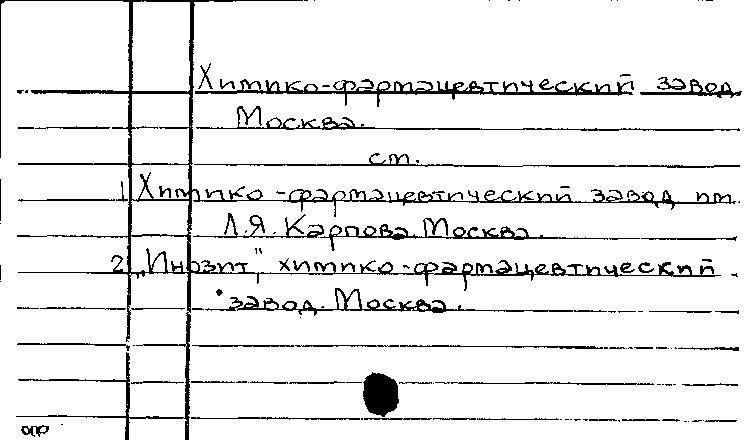 Химико-фармацевтический завод
Москва.
см.
1 Химико-фармацевтический завод им.
Л.Я. Карпова. Москва.
2 „Инозит", химико-фармацевтический
завод. Москва.
опр